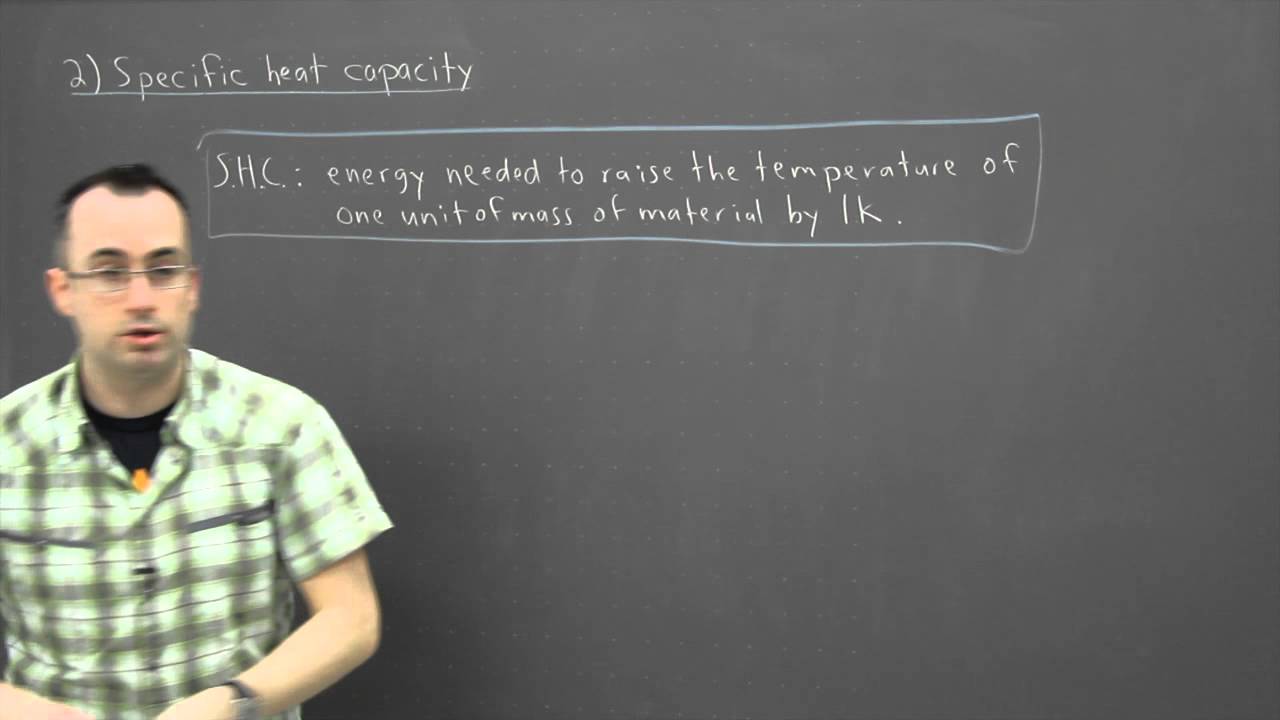 2) Specific heat capacity
S.H.C.: energy needed to raise the temperature of
one unit of mass of material by 1k.